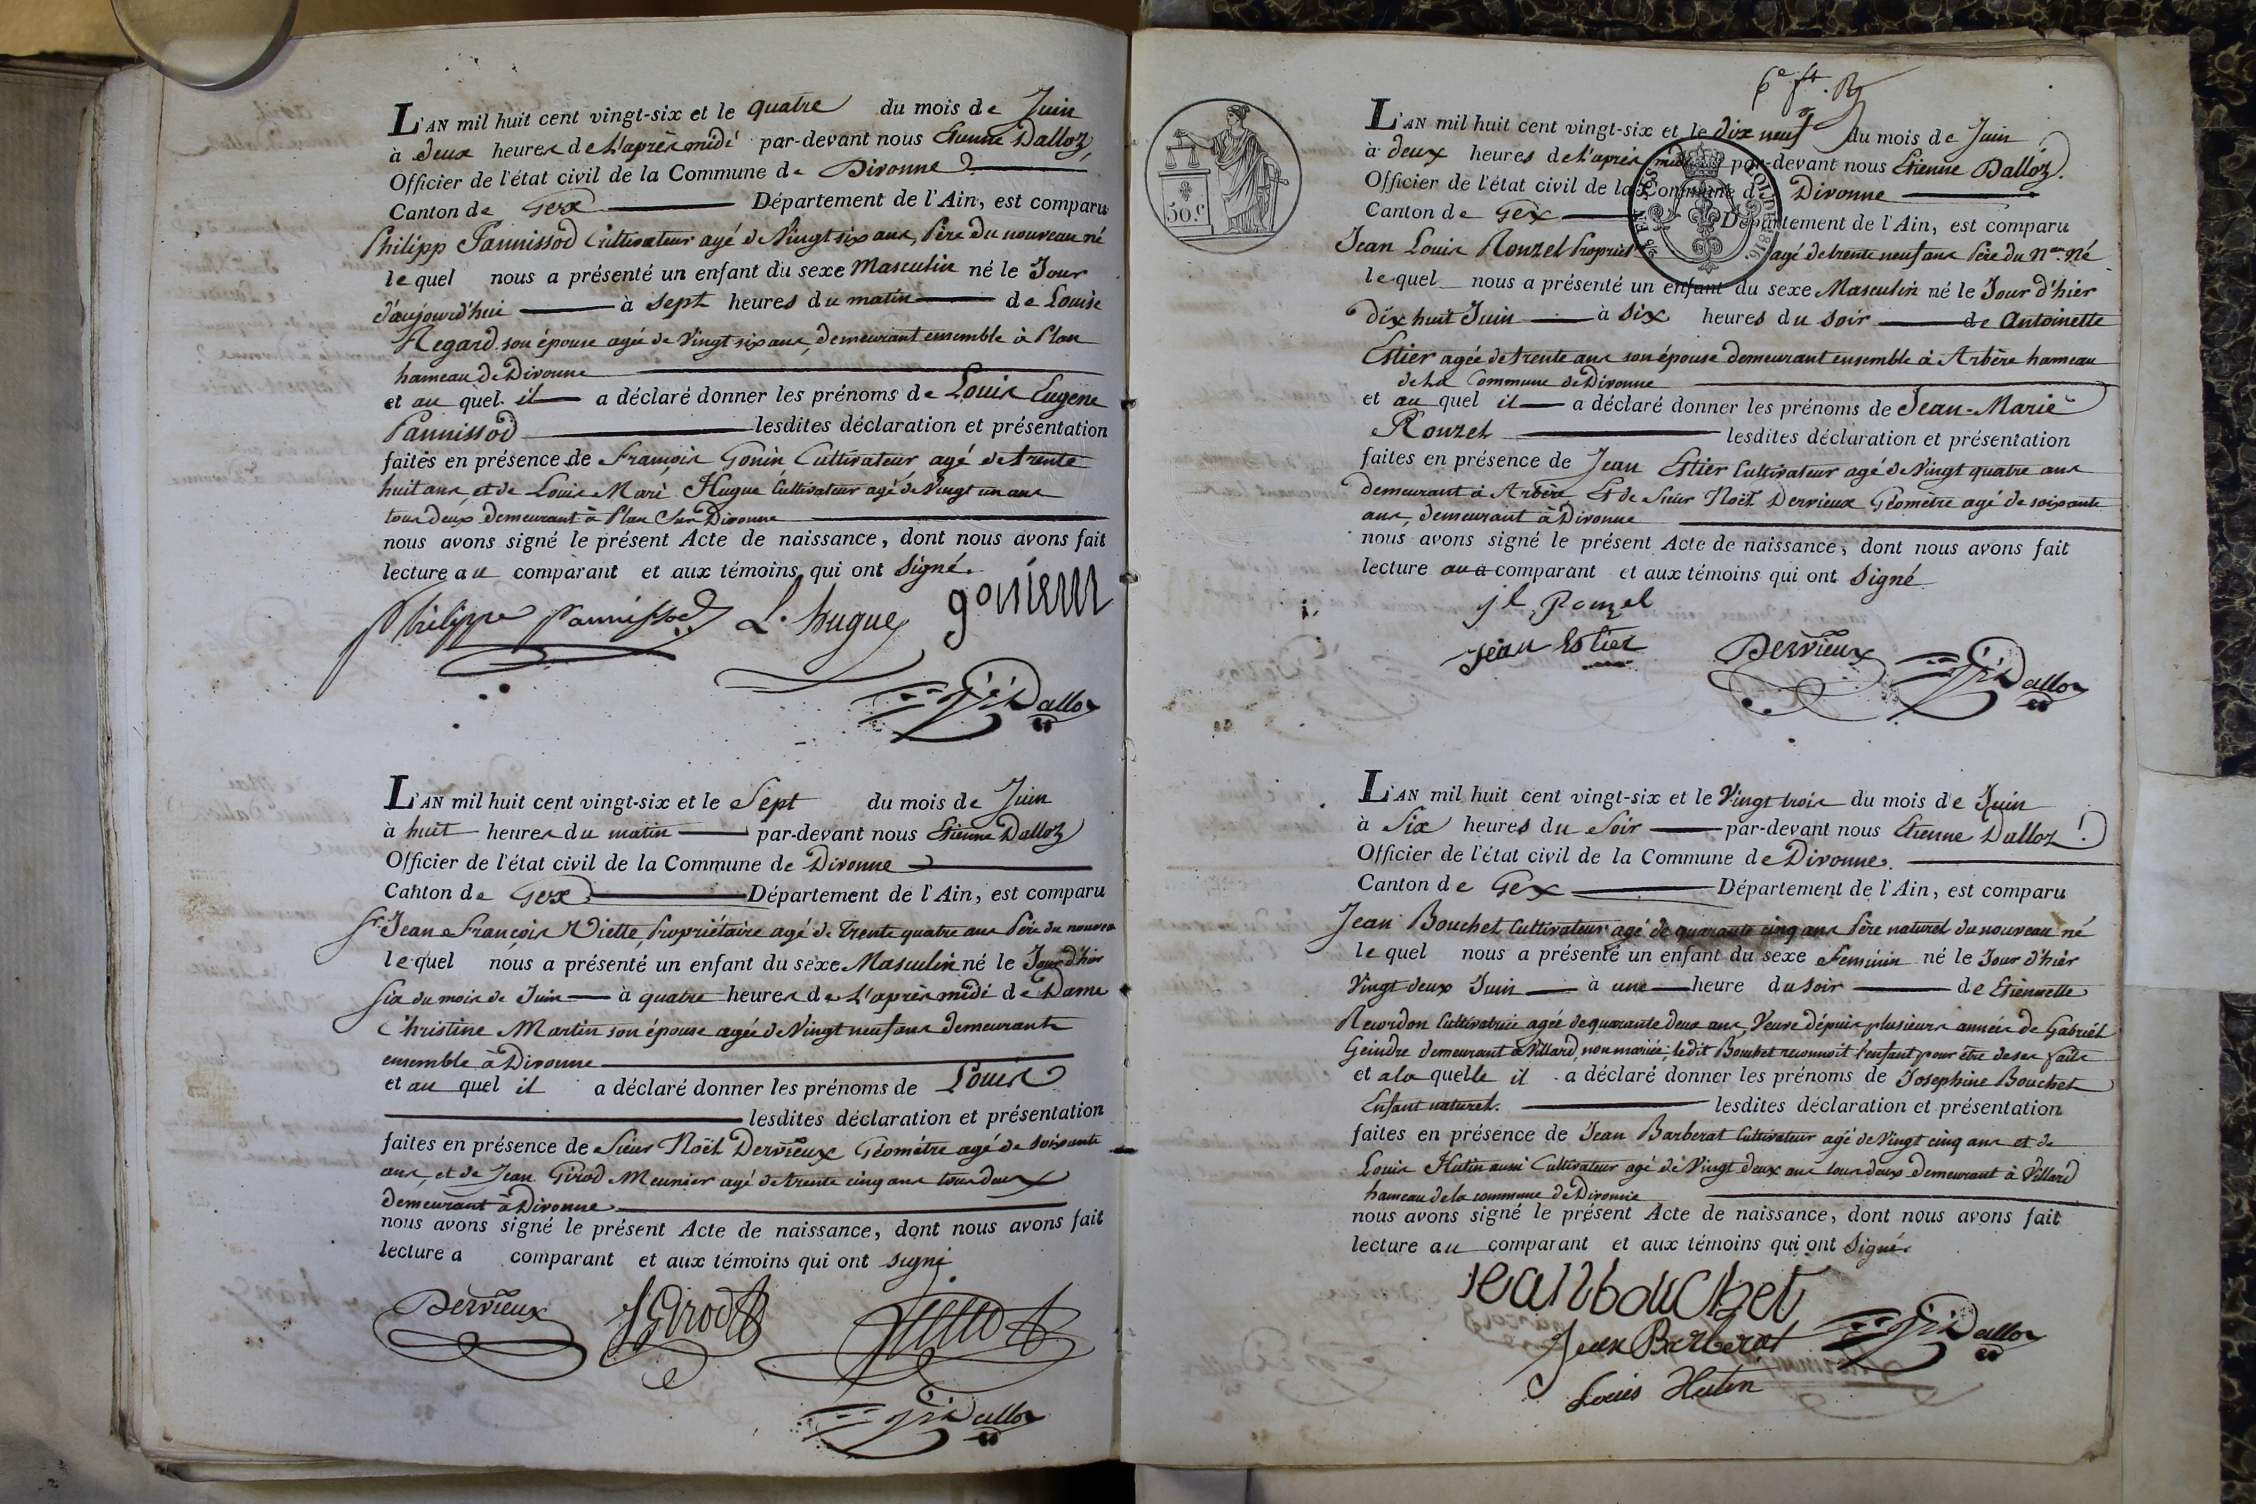 L'AN mil huit cent vingt-six et le quatre du mois de Juin
à deux heures de L'après midi par-devant nous Etienne Dalloz,
Officier de l'état civil de la Commune de Divonne
Canton de Gex Département de l'Ain, est comparu
Philipp Pannissod Cultivateur agé de Vingt six ans, Père du nouveau né
le quel nous a présenté un enfant du sexe Masculin né le Jour
d'aujourd'hui à sept heures du matin de Louise
Regard son épouse agée de Vingt six ans, demeurant ensemble à Plan
hameau de Divonne
et au quel il a déclaré donner les prénoms de Louis Eugene
Pannissod lesdites déclaration et présentation
faites en présence de François Gonin Cultivateur agé de trente
huit ans, et de Louis Mari Hugue Cultivateur agé de Vingt un ans
tous deux demeurant à Plan Sur Divonne
nous avons signé le présent Acte de naissance, dont nous avons fait
lecture au comparant et aux témoins qui ont Signé.
Philippe Pannissod L. hugue
Dalloz
L'AN mil huit cent vingt-six et le Sept du mois de Juin
à huit heures du matin par-devant nous Etienne Dalloz
Officier de l'état civil de la Commune de Divonne
Canton de Gex Département de l'Ain, est comparu
Sr. Jean François Viette, Propriétaire agé de Trente quatre ans Père du nouveau
le quel nous a présenté un enfant du sexe Masculin né le Jour d'hier
Six du mois de Juin à quatre heures de L'après midi de Dame
Christine Martin son épouse agée de Vingt neuf ans demeurants
ensemble à Divonne
et au quel il a déclaré donner les prénoms de Louis
lesdites déclaration et présentation
faites en présence de Sieur Noël Dervieux Géométre agé de soixante
ans, et de Jean Girod Meunier agé de trente cinq ans tous deux
demeurant à Divonne
nous avons signé le présent Acte de naissance, dont nous avons fait
lecture a comparant et aux témoins qui ont signé
Dervieux J Girod
Dalloz
50.c
L'AN mil huit cent vingt-six et le dix neuf du mois de Juin
à deux heures de L'après midi par-devant nous Etienne Dalloz.
Officier de l'état civil de la Commune de Divonne
Canton de Gex Département de l'Ain, est comparu
Jean Louis Rouzet Propriét agé de trente neuf ans Père du Nau. Né
le quel nous a présenté un enfant du sexe Masculin né le Jour d'hier
dix huit Juin à six heures du soir de Antoinette
Estier agée de trente ans son épouse demeurant ensemble à Arbère hameau
de La Commune de Divonne
et au quel il a déclaré donner les prénoms de Jean-Marie
Rouzet lesdites déclaration et présentation
faites en présence de Jean Estier Cultivateur agé de Vingt quatre ans
demeurant à Arbère Et de Sieur Noël Dervieux Géomètre agé de soixante
ans, demeurant à Divonne
nous avons signé le présent Acte de naissance, dont nous avons fait
lecture au comparant et aux témoins qui ont Signé
jl Rouzet
jean Estier Dervieux Dalloz
L'AN mil huit cent vingt-six et le Vingt trois du mois de Juin
à Six heures du Soir par-devant nous Etienne Dalloz
Officier de l'état civil de la Commune de Divonne.
Canton de Gex Département de l'Ain, est comparu
Jean Bouchet Cultivateur agé de quarante cinq ans Père naturel du nouveau né
le quel nous a présenté un enfant du sexe Feminin né le Jour d'hier
Vingt deux Juin à une heure du soir de Etiennette
Recordon Cultivatrice agée de quarante deux ans, Veuve dépuis plusieurs années de Gabriel
Geindre demeurant à Villard, non mariée, le dit Bouchet reconnoit l'enfant pour être de ses faits
et a la quelle il a déclaré donner les prénoms de Josephine Bouchet
Enfant naturel. lesdites déclaration et présentation
faites en présence de Jean Barberat Cultivateur agé de Vingt cinq ans et de
Louis Hutin aussi Cultivateur agé de Vingt deux ans tous deux demeurant à Villard
hameau de la commune de Divonne
nous avons signé le présent Acte de naissance, dont nous avons fait
lecture au comparant et aux témoins qui ont Signé.
jean bouchet
Jean Barberat Dalloz
Louis Hutin